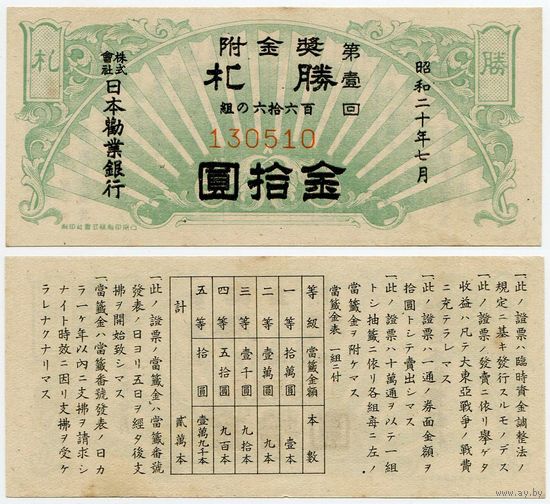 勝
昭和二十年七月
第壹回
獎金附
勝札
百六拾六の組
130510
金拾圓
株式會社
日本勸業銀行
札
一此ノ證票ハ臨時資金調整法ノ
規定ニ基キ發行スルモノデス
一此ノ證票ノ發賣ニ依リ擧ゲタ
收益ハ凡テ大東亞戰爭ノ戰費
ニ充テラレマス
一此ノ證票ハ一通ノ券面金額ヲ
拾圓トシテ賣出シマス
一此ノ證票ハ十萬通ヲ以テ一組
トシ抽籤ニ依リ各組每ニ左ノ
當籤金ヲ附ケマス
當籤金表 一組ニ付
等級 當籤金額 本數
一等 拾萬圓 壹本
二等 壹萬圓 九本
三等 壹千圓 九拾本
四等 五拾圓 九百本
五等 拾圓 壹萬九千本
計 貳萬本
一此ノ證票ノ當籤金ハ當籤番號
發表ノ日ヨリ五日ヲ經タ後支
拂ヲ開始致シマス
一當籤金ハ當籤番號發表ノ日カ
ラ一ケ年以內ニ支拂ヲ請求シ
ナイト時效ニ因リ支拂ヲ受ケ
ラレナクナリマス
www.ay.by